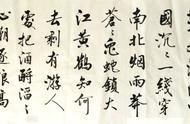 國沉〻一线穿
南北烟雨莽
蒼〻龟蛇鎖大
江黄鶴知何
去剩有游人
處把酒酹滔〻
心潮逐浪高